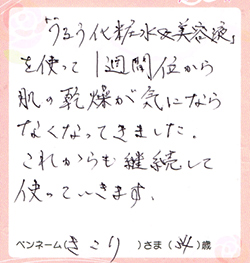 「うるう化粧水&美容液」
を使って1週間位から
肌の乾燥が気になら
なくなってきました.
これからも継続して
使っていきます.
ペンネーム(きこり)さま(54)歳